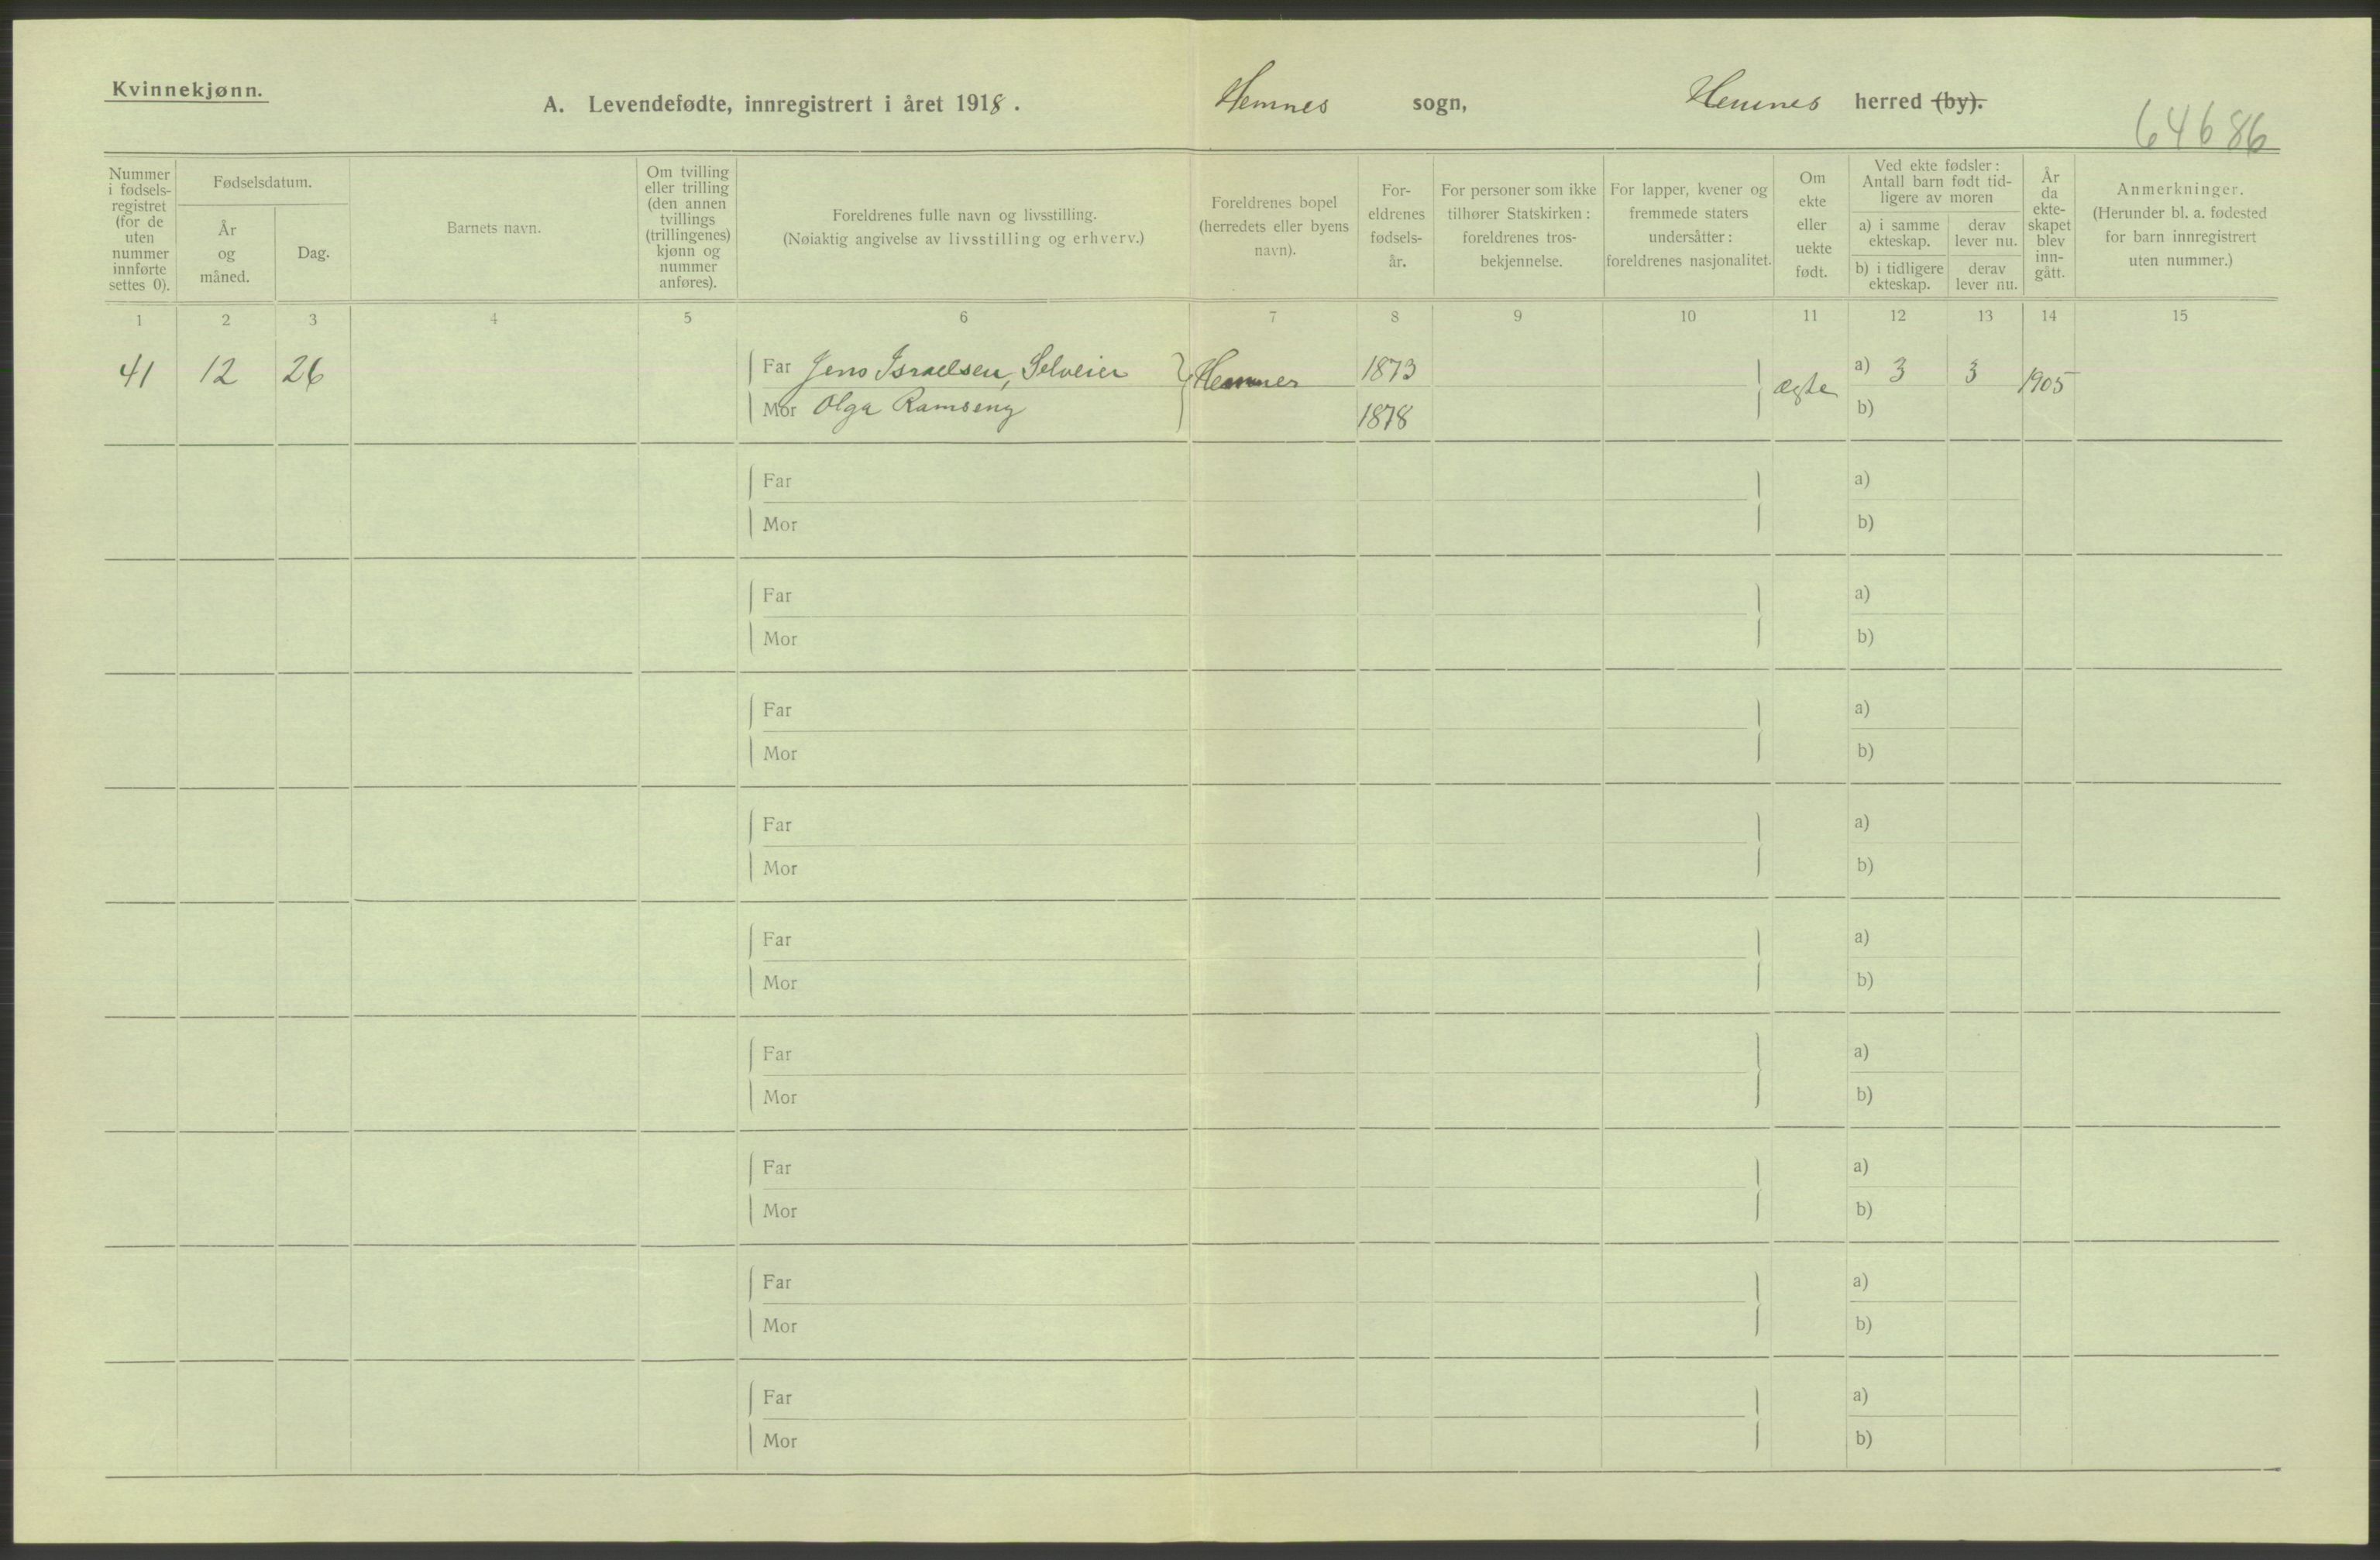 Kvinnekjønn.
A. Levendefødte, innregistrert i året 1918. Hemnes sogn, Hemnes herred (by).
64686
Nummer i fødsels-registret (for de uten nummer innførte settes 0).
Fødselsdatum.
År og måned.
Dag.
Barnets navn.
Om tvilling eller trilling (den annen tvillings (trillingenes) kjønn og nummer anføres).
Foreldrenes fulle navn og livsstilling.
(Nøiaktig angivelse av livsstilling og erhverv.)
Foreldrenes bopel (herredets eller byens navn).
For-eldrenes fødsels-år.
For personer som ikke tilhører Statskirken: foreldrenes tros-bekjennelse.
For lapper, kvener og fremmede staters undersåtter: foreldrenes nasjonalitet.
Om ekte eller uekte født.
Ved ekte fødsler: Antall barn født tid-ligere av moren
a) i samme ekteskap.
derav lever nu.
b) i tidligere ekteskap.
derav lever nu.
År da ekte-skapet blev inn-gått.
Anmerkninger.
(Herunder bl. a. fødested for barn innregistrert uten nummer.)
1 2 3 4 5 6 7 8 9 10 11 12 13 14 15
41 12 26 Far Jens Israelsen, Selveier Hemnes 1873 ægte a) 3 3 1905
Mor Olga Ramseng 1878 b)
Far a)
Mor b)
Far a)
Mor b)
Far a)
Mor b)
Far a)
Mor b)
Far a)
Mor b)
Far a)
Mor b)
Far a)
Mor b)
Far a)
Mor b)
Far a)
Mor b)